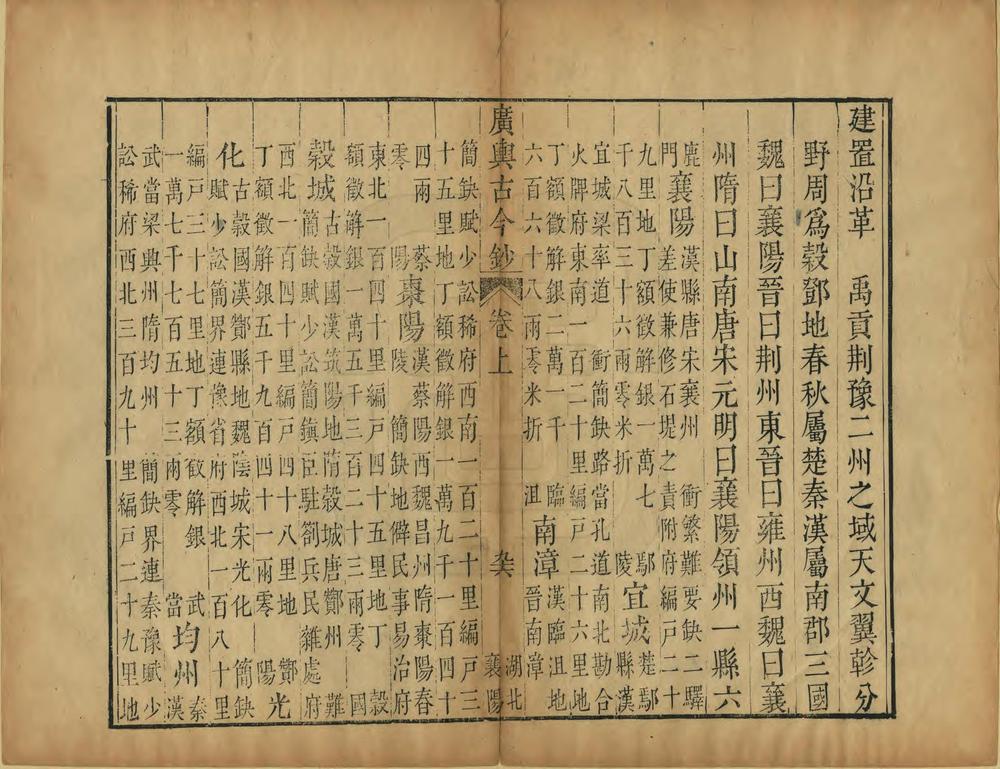 建置沿革　禹貢荆豫二州之域天文翼軫分
野周爲穀鄧地春秋屬楚秦漢屬南郡三國
魏曰襄陽晉曰荆州東晉曰雍州西魏曰襄
州隋曰山南唐宋元明曰襄陽領州一縣六
鹿門　襄陽　漢縣唐宋襄州　衝繁難要缺二驛
差使兼修石堤之責附府編戶二十
九里地丁額徵解銀一萬七
千八百三十六兩零米折　鄢陵　宜城　楚鄢縣漢
宜城梁率道　衝簡缺路當孔道南北勘合
火牌府東南一百二十里編戶二十六里地
丁額徵解銀二萬一千
六百六十八兩零米折　臨沮　南漳　漢臨沮地晉南漳
廣輿古今鈔　卷上　湖北　襄陽
簡缺賦少訟稀府西南一百二十里編戶三
十五里地丁額徵解銀一萬九千一百四十
四兩零　蔡陽　棗陽　漢蔡陽西魏昌州隋棗陽春
陵　簡缺地僻民事易治府
東北一百四十里編戶四十五里地丁
額徵解銀一萬五千三百二十三兩零　穀國
穀城　古穀國漢筑陽地隋穀城唐酇州　難
簡缺賦少訟簡鎮臣駐劄兵民雜處府
西北一百四十里編戶四十八里地
丁額徵解銀五千九百四十一兩零　酇陽　光
化　古穀國漢酇縣地魏陰城宋光化　簡缺
賦少訟簡界連豫省府西北一百八十里
編戶三十七里地丁額徵解銀
一萬七千七百五十三兩零　武當　均州　秦漢
武當梁興州隋均州　簡缺界連秦豫賦少
訟稀府西北三百九十里編戶二十九里地